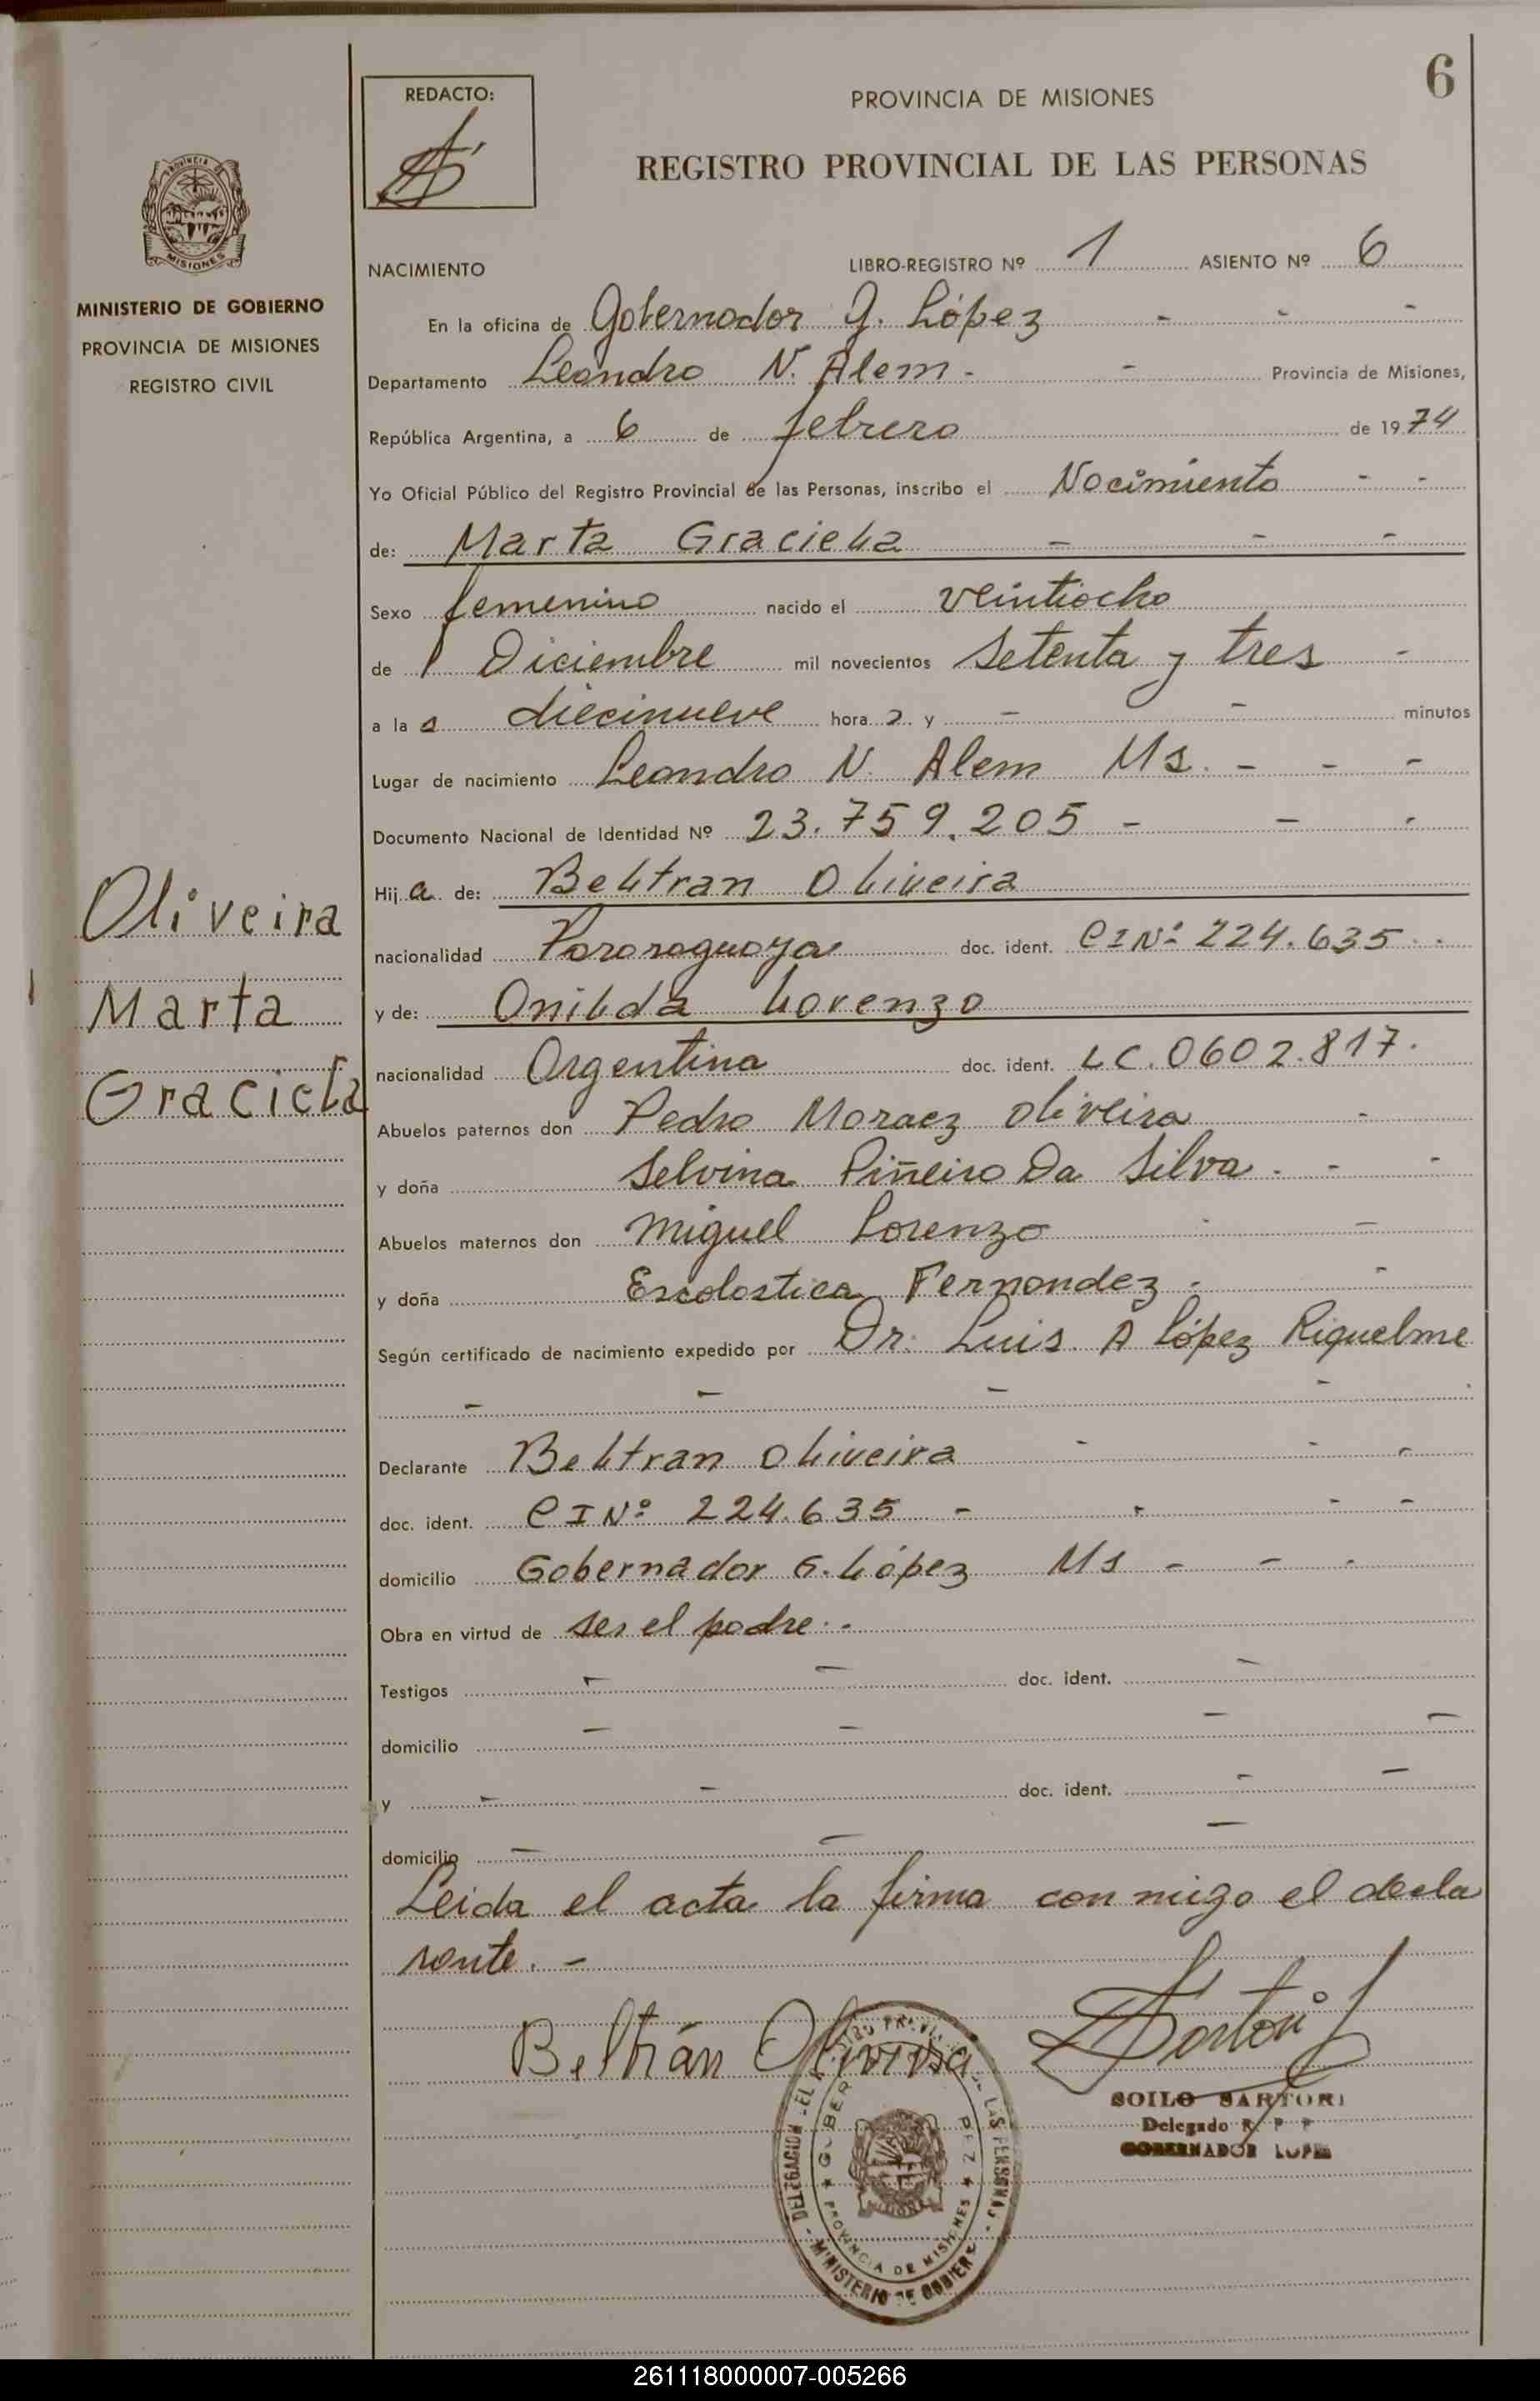 6
REDACTO:
PROVINCIA DE MISIONES
REGISTRO PROVINCIAL DE LAS PERSONAS
PROVINCIA
MISIONES
MINISTERIO DE GOBIERNO
PROVINCIA DE MISIONES
REGISTRO CIVIL
NACIMIENTO LIBRO-REGISTRO Nº 1 ASIENTO Nº 6
En la oficina de Gobernador G. López - - -
Departamento Leandro N. Alem - - Provincia de Misiones,
República Argentina, a 6 de febrero de 1974
Yo Oficial Público del Registro Provincial de las Personas, inscribo el Nacimiento - -
de: Marta Graciela - - -
Sexo femenino nacido el veintiocho
de Diciembre mil novecientos setenta y tres -
a las diecinueve hora s y - - minutos
Lugar de nacimiento Leandro N. Alem Ms. - - -
Documento Nacional de Identidad Nº 23.759.205 - - -
Hija de: Beltran Oliveira
nacionalidad Pararaguaya doc. ident. CI Nº 224.635
y de: Onilda Lorenzo
nacionalidad Argentina doc. ident. LC. 0602.817.
Abuelos paternos don Pedro Moraez Oliveira -
y doña Selvina Piñeiro Da Silva. - -
Abuelos maternos don Miguel Lorenzo - -
y doña Escolastica Fernandez - -
Según certificado de nacimiento expedido por Dr. Luis. A López Riquelme
- - - -
Declarante Beltran Oliveira - - -
doc. ident. CI Nº 224.635 - - - -
domicilio Gobernador G. López Ms - - -
Obra en virtud de ser el padre. -
Testigos - - doc. ident. -
domicilio - - - -
y - - doc. ident. - -
domicilio - - -
Leida el acta la firma con migo el decla
rante. -
Oliveira
Marta
Graciela
Beltrán Oliveira
Sartori
SOILO SARTORI
Delegado R. P. P
GOBERNADOR LOPEZ
DELEGACION DEL REGISTRO PROVINCIAL DE LAS PERSONAS - MINISTERIO DE GOBIERNO
GOBERNADOR LOPEZ ★ PROVINCIA DE MISIONES ★
261118000007-005266